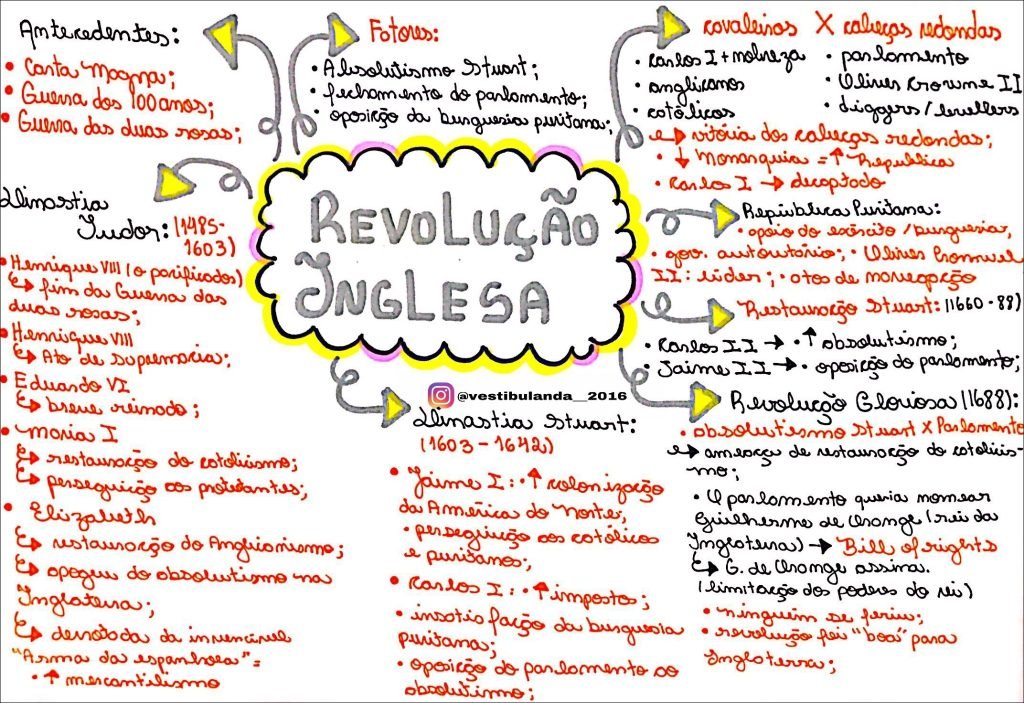 Antecedentes:
• Carta Magna;
• Guerra dos 100 anos;
• Guerra das duas rosas;
Fatores:
• Absolutismo Stuart;
• fechamento do parlamento;
• oposição da burguesia puritana;
cavaleiros X cabeças redondas
• Carlos I + nobreza
• anglicanos
• católicos
• parlamento
• Oliver Crowme II
• diggers/levellers
↳ vitória dos cabeças redondas;
• ↓ Monarquia = ↑ República
• Carlos I → decaptado
Dinastia
Tudor: (1485-
1603)
• Henrique VIII (o parificador)
↳ fim da Guerra das
duas rosas;
• Henrique VIII
↳ Ato de supremacia;
• Eduardo VI
↳ breve reinado;
• Maria I
↳ restauração do catolicismo;
↳ perseguição aos protestantes;
• Elizabeth
↳ restauração do Anglicanismo;
↳ apogeu do absolutismo na
Inglaterra;
↳ derrotada da invencível
"Arma da espanhola" =
• ↑ mercantilismo
REVOLUÇÃO
INGLESA
@vestibulanda__2016
República Puritana:
• apoio do exército/burguesia;
• gov. autoritário; • Oliver Cromwel
II: líder; • atos de navegação
Restauração Stuart: (1660-88)
• Carlos II → • ↑ absolutismo;
• Jaime II → • oposição do parlamento;
Dinastia Stuart:
(1603 - 1642)
• Jaime I: • ↑ colonização
da América do Norte;
• perseguição aos católicos
e puritanos;
• Carlos I: • ↑ impostos;
• insatisfação da burguesia
puritana;
• oposição do parlamento ao
absolutismo;
Revolução Gloriosa (1688):
• absolutismo Stuart X Parlamento
↳ ameaça de restauração do catolicis-
mo;
• O parlamento queria nomear
Guilherme de Orange (rei da
Inglaterra) → Bill of rights
↳ G. de Orange assina.
(limitação dos poderes do rei)
• ninguém se feriu;
• revolução foi "boa" para
Inglaterra;